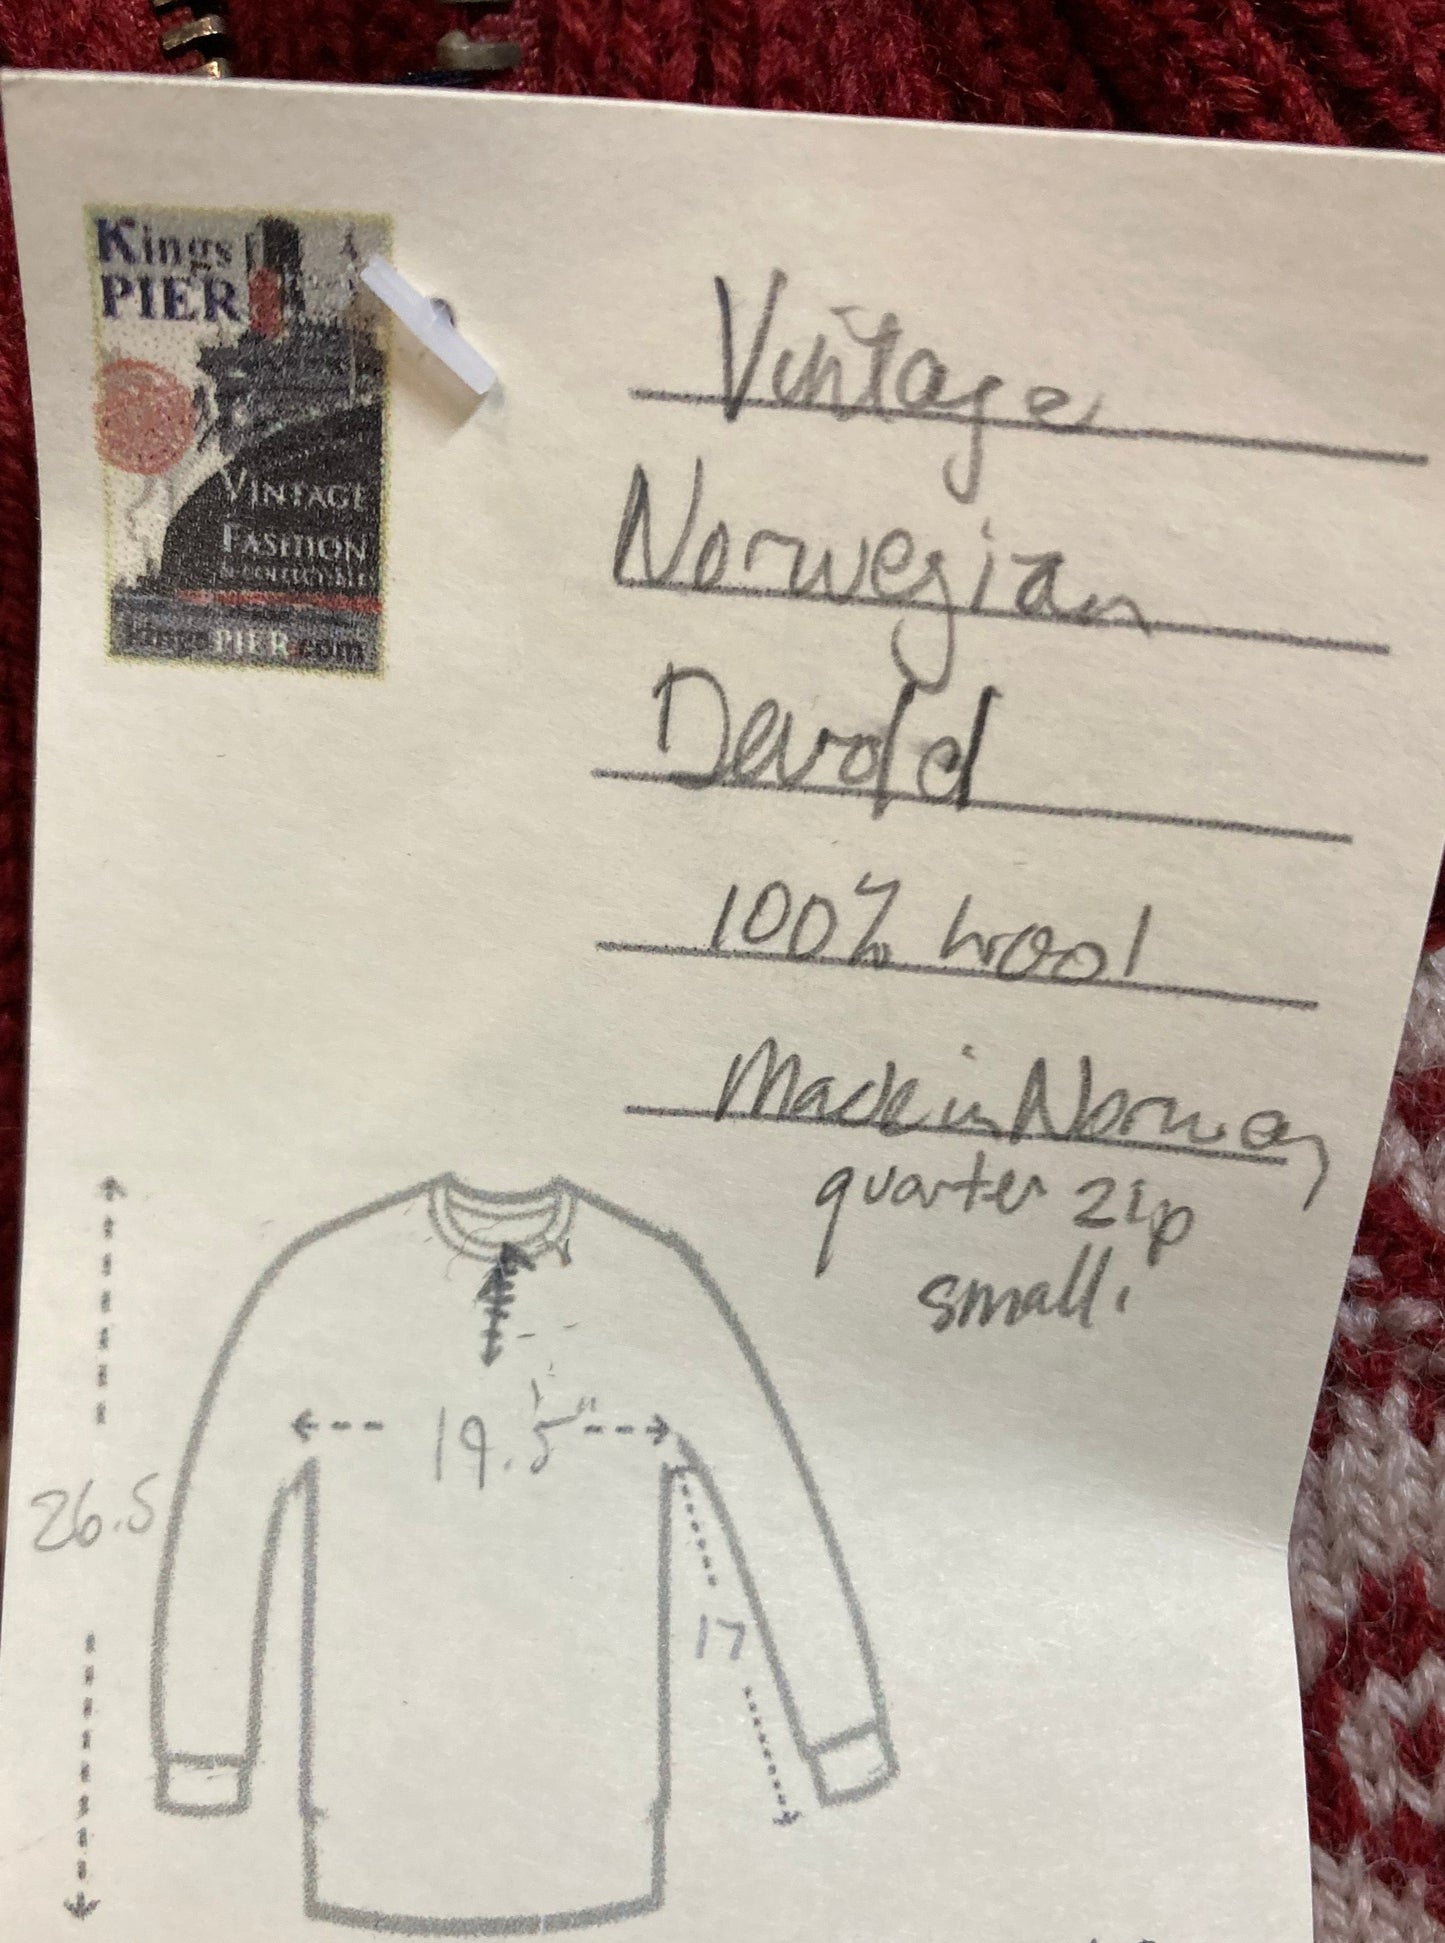 Kings
PIER
VINTAGE
FASHION
& COLLECTIBLES
kingsPIER.com
Vintage
Norwegian
Devold
100% wool
Made in Norway
quarter zip
small.
19.5"
26.5
17